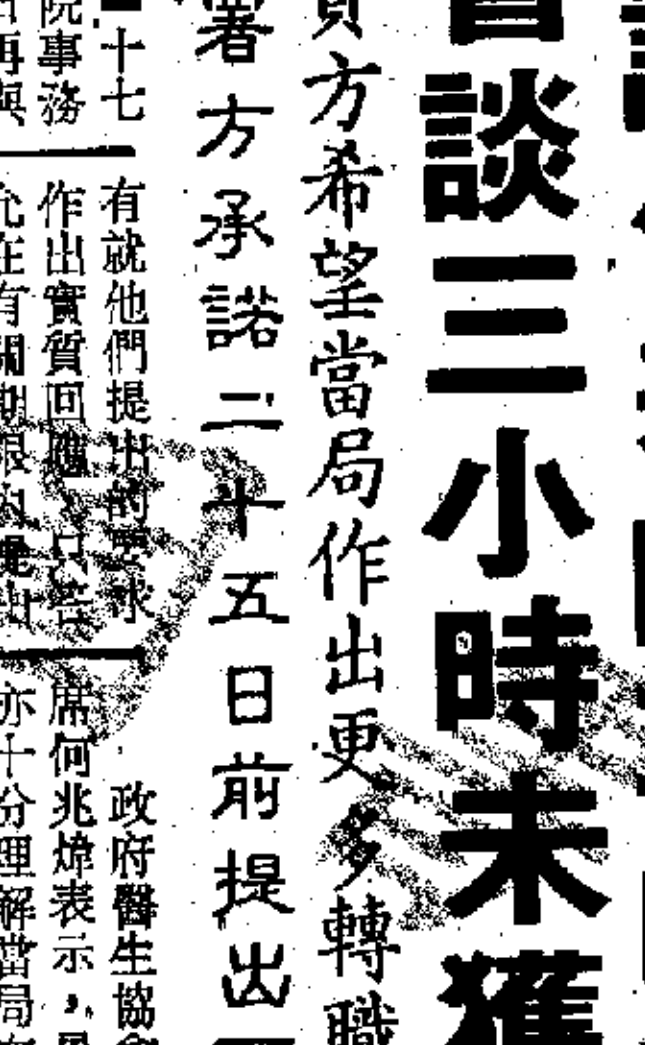 談三小時未獲
方希望當局作出更多轉職
署方承諾二十五日前提出
十七
院事務
再與
有就他們提出的要求
作出實質回應，只答
允在有關期限內提出
政府醫生協
席何兆煒表示，
亦十分理解當局